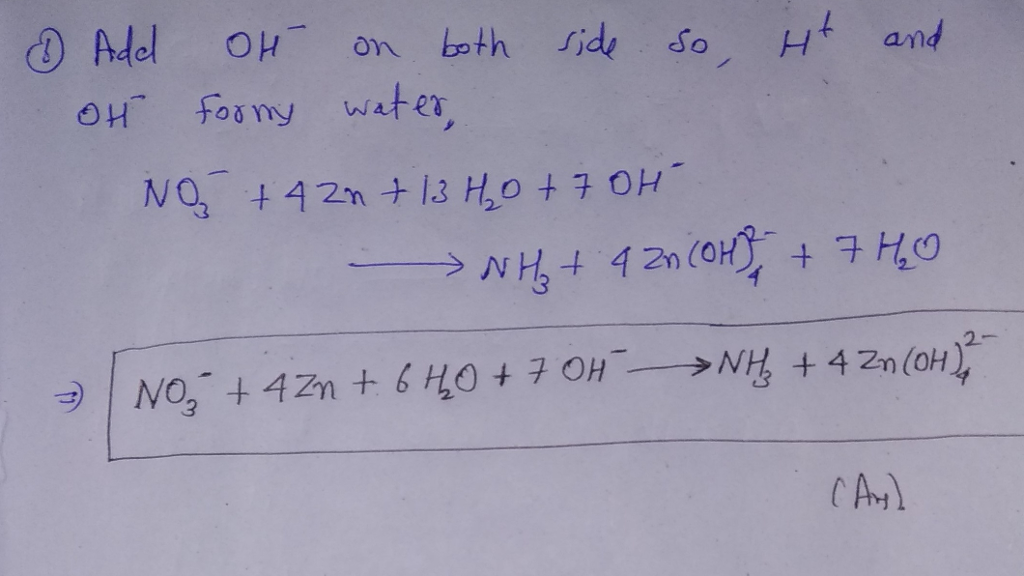 ⑧ Add OH⁻ on both side so, H⁺ and
OH⁻ formy water,
NO₃⁻ + 4 Zn + 13 H₂O + 7 OH⁻
⟶ NH₃ + 4 Zn(OH)₄²⁻ + 7 H₂O
⇒ NO₃⁻ + 4 Zn + 6 H₂O + 7 OH⁻ ⟶ NH₃ + 4 Zn(OH)₄²⁻
(Ans)